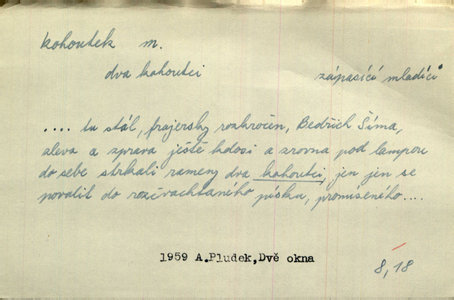 kohoutek m.
dva kohoutci zápasící mladíci
.... tu stál, frajersky rozkročen, Bedřich Šíma,
zleva a zprava ještě kdosi a zrovna pod lampou
do sebe strkali rameny dva kohoutci, jen jen se
povalit do rozčvachtaného písku, promíseného....
1959 A.Pludek,Dvě okna
8,18